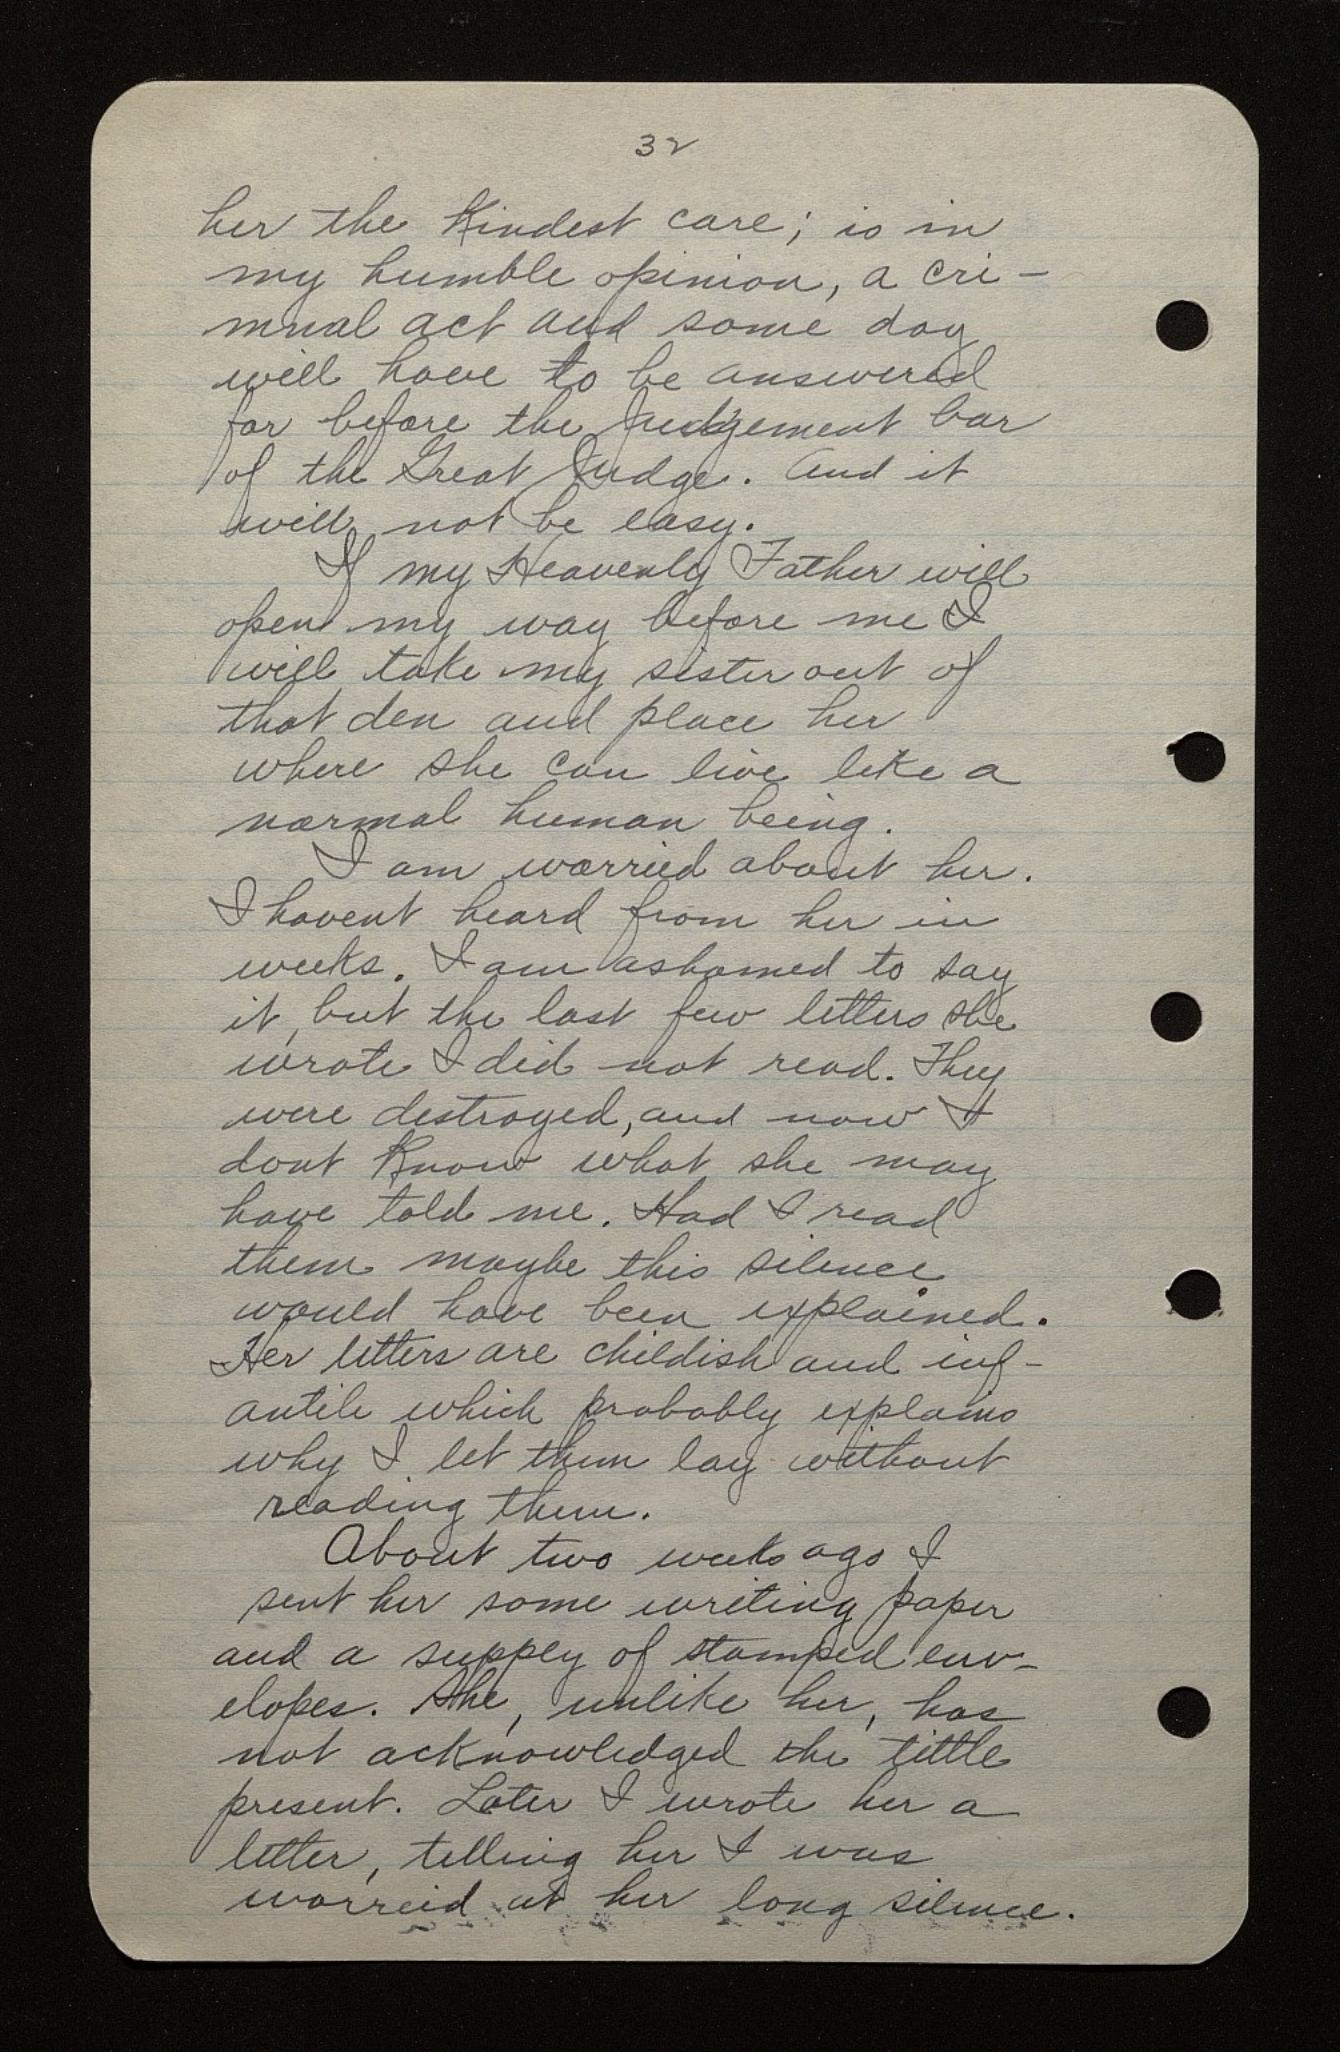 32
her the kindest care; is in
my humble opinion, a cri-
mnal act and some day
will have to be answered
for before the Judgement bar
of the Great Judge. And it
will not be easy.
If my Heavenly Father will
open my way before me I
will take my sister out of
that den and place her
where she can live like a
normal human being.
I am worried about her.
I havent heard from her in
weeks. I am ashamed to say
it, but the last few letters she
wrote I did not read. They
were destroyed, and now I
dont know what she may
have told me. Had I read
them maybe this silence
would have been explained.
Her letters are childish and inf-
antile which probably explains
why I let them lay without
reading them.
About two weeks ago I
sent her some writing paper
and a supply of stamped env-
elopes. She, unlike her, has
not acknowledged the little
present. Later I wrote her a
letter, telling her I was
worreid at her long silence.